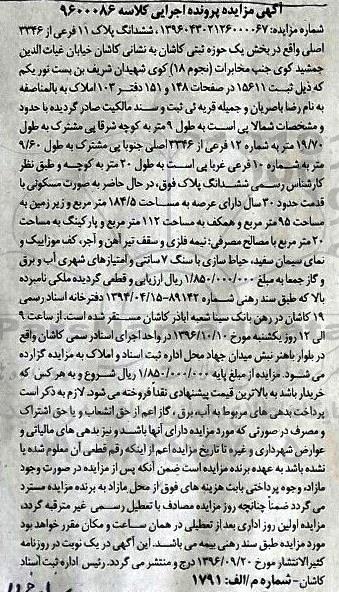 آگهی مزایده پرونده اجرایی کلاسه ۹۶۰۰۰۸۶
شماره مزایده: ۱۳۹۶۰۴۳۰۲۱۲۶۰۰۰۰۶۷، ششدانگ پلاک ۱۱ فرعی از ۳۳۴۶
اصلی واقع در بخش یک حوزه ثبتی کاشان به نشانی کاشان خیابان غیاث الدین
جمشید کوی جنب مخابرات (نجوم ۱۸) کوی شهیدان شریف بن بست نور یکم
که ذیل ثبت ۱۵۶۱۱ در صفحات ۱۴۸ و ۱۵۱ دفتر ۱۰۳ املاک به بالمناصفه
به نام رضا باصریان و جمیله قربه ئی ثبت و سند مالکیت صادر گردیده با حدود
و مشخصات شمالا پی است به طول ۹ متر به کوچه شرقا پی مشترک به طول
۱۹/۷۰ متر به شماره ۱۲ فرعی از ۳۳۴۶ اصلی جنوبا پی مشترک به طول ۹/۶۰
متر به شماره ۱۰ فرعی غربا پی است به طول ۲۰ متر به کوچه و طبق نظر
کارشناس رسمی ششدانگ پلاک فوق، در حال حاضر به صورت مسکونی با
قدمت حدود ۳۰ سال دارای عرصه به مساحت ۱۸۴/۵ متر مربع و زیر زمین به
مساحت ۹۵ متر مربع و همکف به مساحت ۱۱۲ متر مربع و پارکینگ به مساحت
۲۰ متر مربع با مصالح مصرفی: نیمه فلزی و سقف تیر آهن و آجر، کف موزاییک و
نمای سیمان سفید، حیاط سازی با سنگ ۷ سانتی و امتیازهای شهری آب و برق
و گاز جمعا به مبلغ ۱/۸۵۰/۰۰۰/۰۰۰ ریال ارزیابی و قطعی گردیده ملکی نامبرده
بالا که طبق سند رهنی شماره ۸۹۱۴۲-۱۳۹۴/۰۴/۱۵ دفترخانه اسناد رسمی
۱۹ کاشان در رهن بانک سینا شعبه اباذر کاشان مستقر شده است. از ساعت ۹
الی ۱۲ روز یکشنبه مورخ ۱۳۹۶/۱۰/۱۰ در واحد اجرای اسناد رسمی کاشان واقع
در بلوار باهنر نبش میدان جهاد محل اداره ثبت اسناد و املاک به مزایده گزارده
می شود. مزایده از مبلغ پایه ۱/۸۵۰/۰۰۰/۰۰۰ ریال شروع و به هر کس که
خریدار باشد به بالاترین قیمت پیشنهادی نقدا فروخته می شود. لازم به ذکر است
پرداخت بدهی های مربوط به آب، برق، گاز اعم از حق انشعاب و یا حق اشتراک
و مصرف در صورتی که مورد مزایده دارای آنها باشد و نیز بدهی های مالیاتی و
عوارض شهرداری و غیره تا تاریخ مزایده اعم از اینکه رقم قطعی آن معلوم شده یا
نشده باشد به عهده برنده مزایده است ضمن آنکه پس از مزایده در صورت وجود
مازاد، وجوه پرداختی بابت هزینه های فوق از محل مازاد به برنده مزایده مسترد
می گردد ضمنا چنانچه روز مزایده مصادف با تعطیل رسمی غیر مترقبه گردد،
مزایده اولین روز اداری بعد از تعطیلی در همان ساعت و مکان مقرر خواهد بود
مورد مزایده طبق سند رهنی بیمه می باشد. این آگهی در یک نوبت در روزنامه
کثیرالانتشار مورخ ۱۳۹۶/۰۹/۲۰ درج و منتشر می گردد. رئیس اداره ثبت اسناد
کاشان - شماره م/الف: ۱۷۹۱